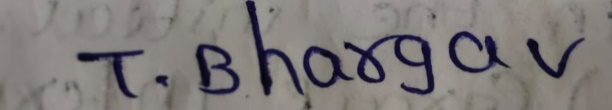 T. Bhargav